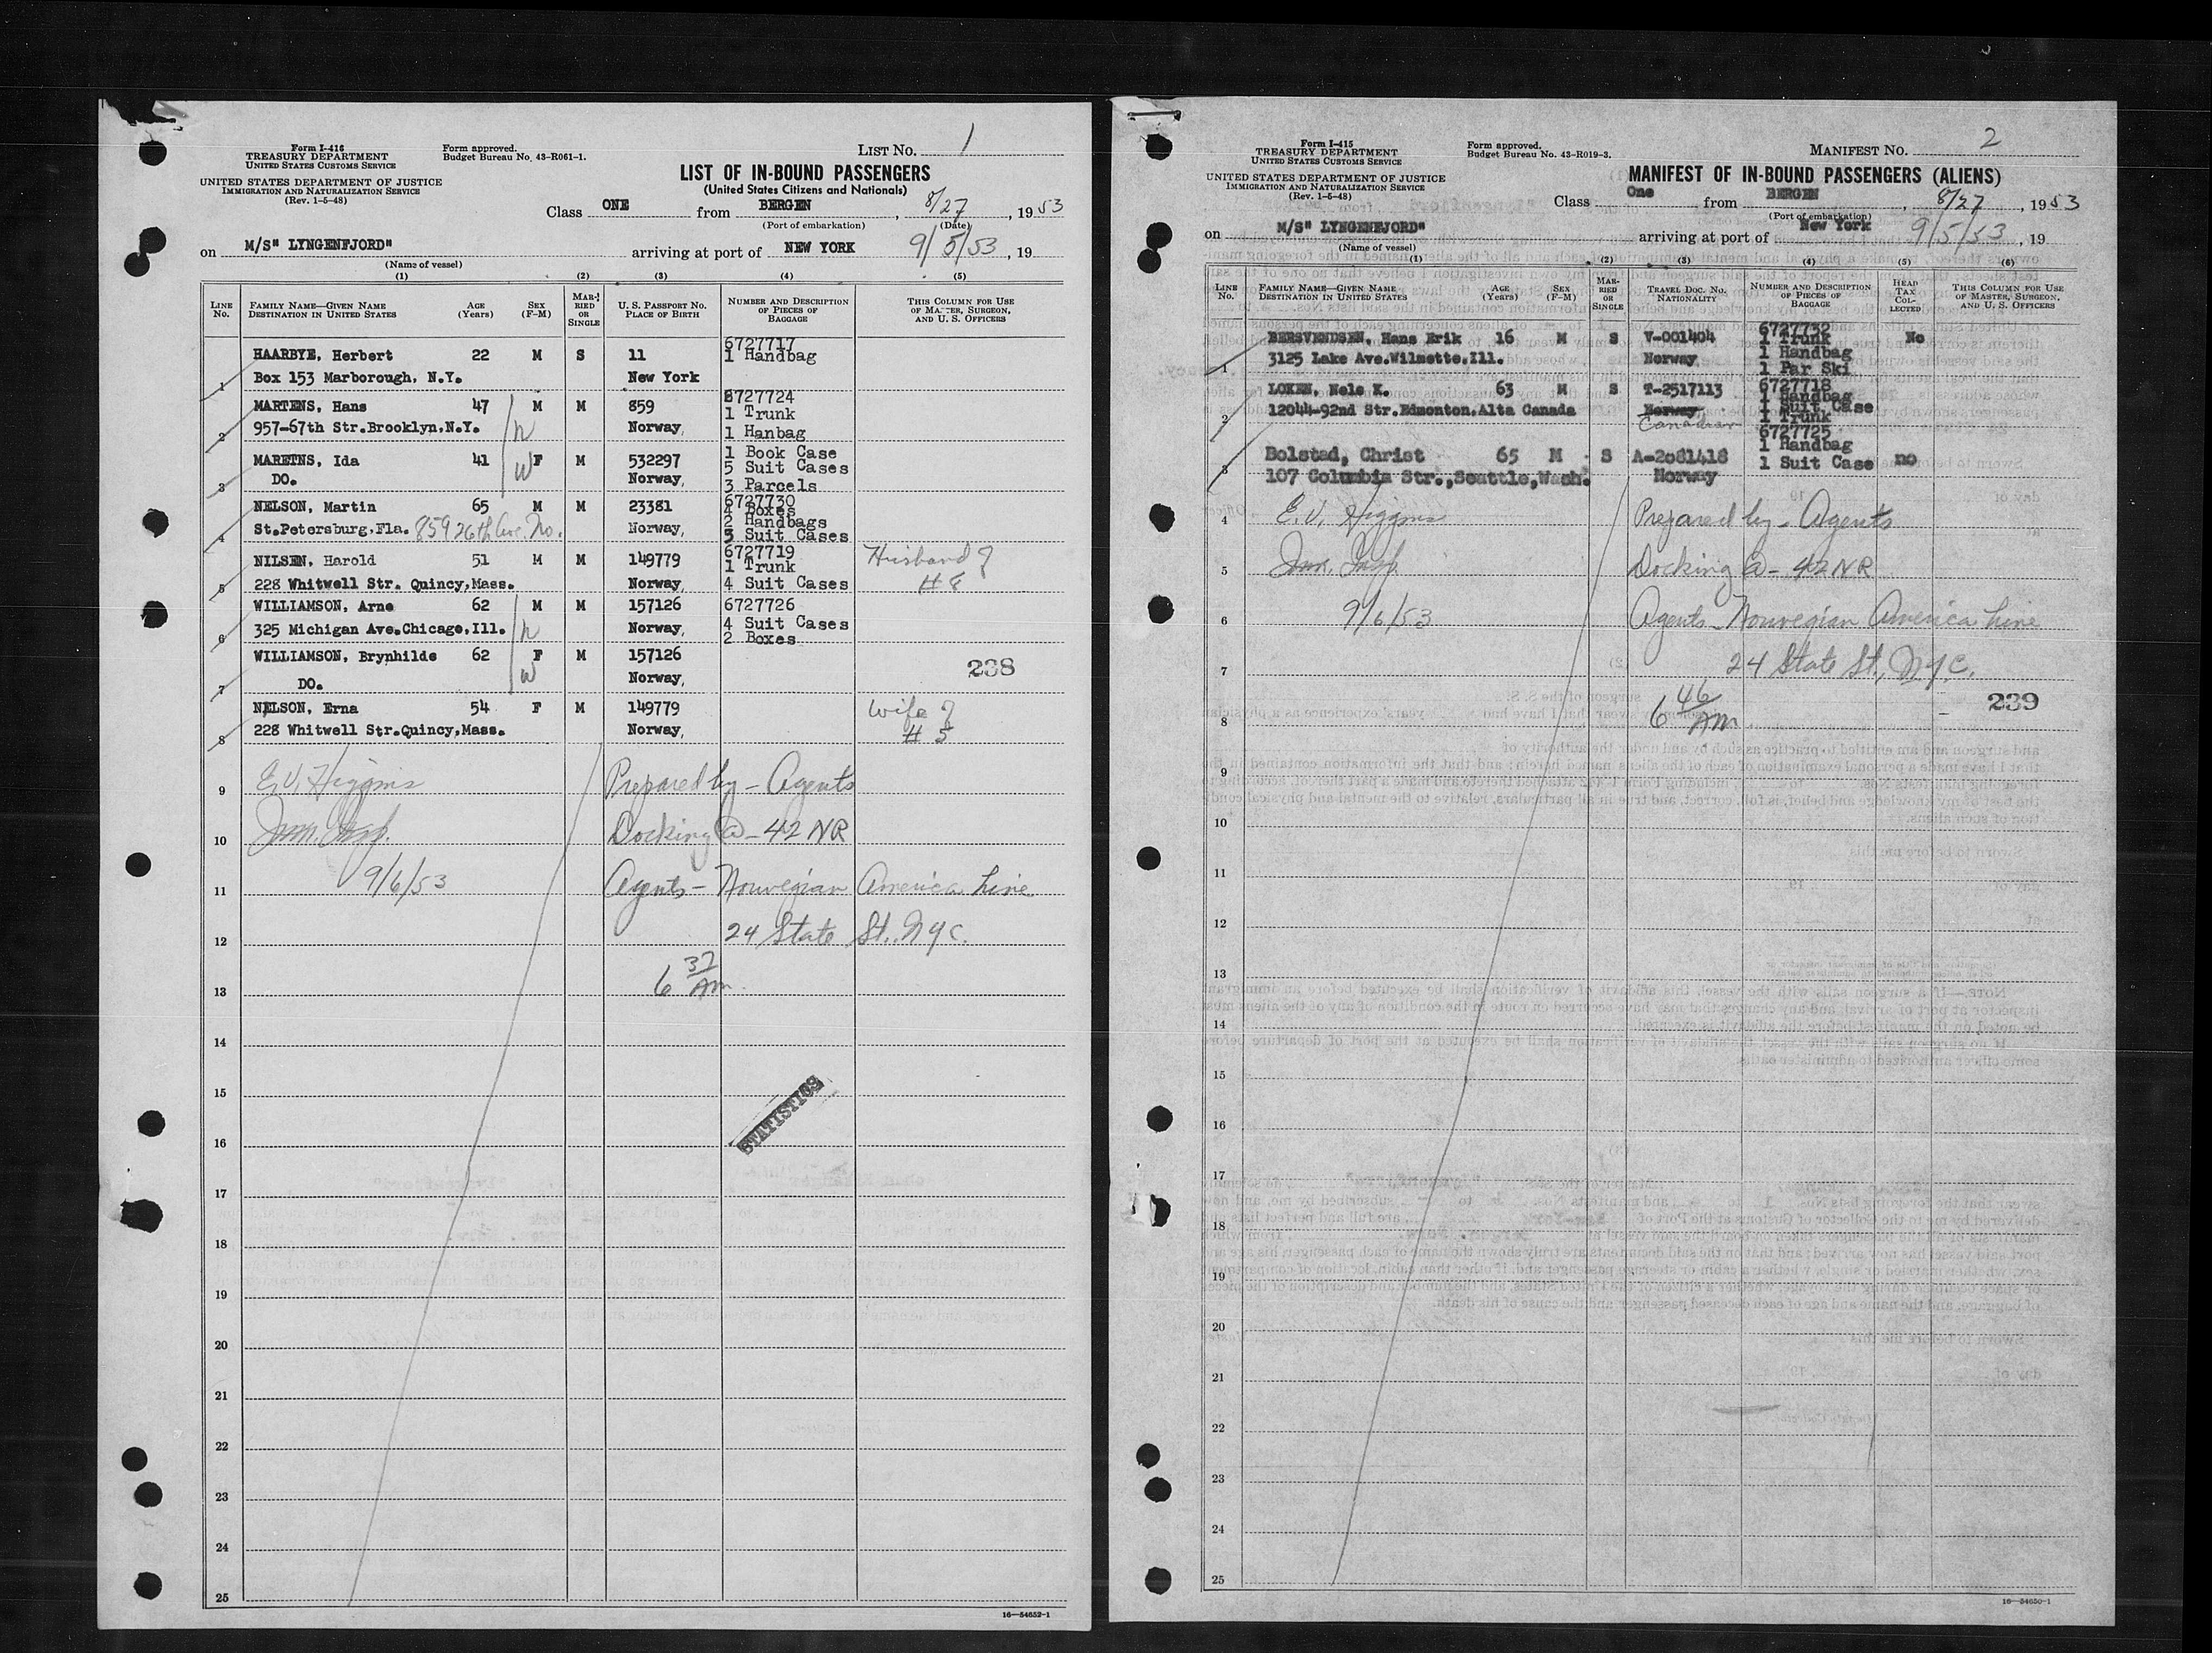 Form I-416
TREASURY DEPARTMENT
UNITED STATES CUSTOMS SERVICE
Form approved.
Budget Bureau No. 43-R061-1.
LIST NO. 1
UNITED STATES DEPARTMENT OF JUSTICE
IMMIGRATION AND NATURALIZATION SERVICE
(Rev. 1-5-48)
LIST OF IN-BOUND PASSENGERS
(United States Citizens and Nationals)
Class ONE from BERGEN, 8/27, 1953
(Port of embarkation) (Date)
on M/S" LYNGENFJORD" arriving at port of NEW YORK 9/5/53, 19
(Name of vessel)
(1) (2) (3) (4) (5)
LINE No. FAMILY NAME—GIVEN NAME DESTINATION IN UNITED STATES AGE (Years) SEX (F-M) MARRIED OR SINGLE U. S. PASSPORT NO. PLACE OF BIRTH NUMBER AND DESCRIPTION OF PIECES OF BAGGAGE THIS COLUMN FOR USE OF MASTER, SURGEON, AND U. S. OFFICERS
6727717
HAARBYE, Herbert 22 M S 11 1 Handbag
1 Box 153 Marborough, N.Y. New York
6727724
MARTENS, Hans 47 M M 859 1 Trunk
2 957-67th Str.Brooklyn.N.Y. h Norway, 1 Hanbag
1 Book Case
MARETNS, Ida 41 W F M 532297 5 Suit Cases
3 DO. Norway, 3 Parcels
6727730
NELSON, Martin 65 M M 23381 4 Boxes
2 Handbags
4 St.Petersburg,Fla. 859 26th Ave. No. Norway, 3 Suit Cases
6727719
NILSEN, Harold 51 M M 149779 1 Trunk Husband of
5 228 Whitwell Str. Quincy,Mass. Norway, 4 Suit Cases #8
WILLIAMSON, Arne 62 M M 157126 6727726
6 325 Michigan Ave.Chicago,Ill. h Norway, 4 Suit Cases
2 Boxes
WILLIAMSON, Brynhilde 62 F M 157126
7 DO. W Norway, 238
NELSON, Erna 54 F M 149779 Wife of
8 228 Whitwell Str.Quincy,Mass. Norway, #5
9 E.V. Higgins Prepared by - Agents
10 Imm. Insp. Docking @ - 42 NR
11 9/6/53 Agents - Norwegian America Line
12 24 State St. N.Y.C.
13 6 37 AM
14
15
STATISTICS
16
17
18
19
20
21
22
23
24
25
16—54652-1
Form I-415
TREASURY DEPARTMENT
UNITED STATES CUSTOMS SERVICE
Form approved.
Budget Bureau No. 43-R019-3.
MANIFEST NO. 2
UNITED STATES DEPARTMENT OF JUSTICE
IMMIGRATION AND NATURALIZATION SERVICE
(Rev. 1-5-48)
MANIFEST OF IN-BOUND PASSENGERS (ALIENS)
Class One from BERGEN, 8/27, 1953
(Port of embarkation)
on M/S" LYNGENFJORD" arriving at port of New York 9/5/53, 19
(Name of vessel)
(1) (2) (3) (4) (5) (6)
LINE No. FAMILY NAME—GIVEN NAME DESTINATION IN UNITED STATES AGE (Years) SEX (F-M) MARRIED OR SINGLE TRAVEL DOC. NO. NATIONALITY NUMBER AND DESCRIPTION OF PIECES OF BAGGAGE HEAD TAX COLLECTED THIS COLUMN FOR USE OF MASTER, SURGEON, AND U. S. OFFICERS
6727732
BERSVENDSEN, Hans Erik 16 M S V-001404 1 Trunk No
1 Handbag
1 3125 Lake Ave.Wilmette,Ill. Norway 1 Par Ski
6727718
LOKEN, Nels K. 63 M S T-2517113 1 Handbag
1 Suit Case
2 12044-92nd Str.Edmonton.Alta Canada Norway 1 Trunk
Canadian
6727725
Bolstad, Christ 65 M S A-2081418 1 Handbag
3 107 Columbia Str.,Seattle,Wash. Norway 1 Suit Case no
4 E.V. Higgins Prepared by - Agents
5 Imm. Insp. Docking @ - 42 NR
6 9/6/53 Agents - Norwegian America Line
7 24 State St., N.Y.C.
239
8 6 46 AM
9
10
11
12
13
14
15
16
17
18
19
20
21
22
23
24
25
16—54650-1